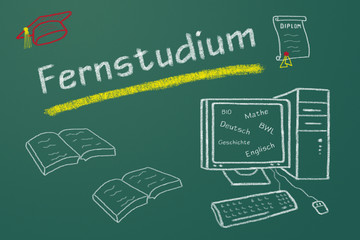 DIPLOM
Fernstudium
BIO
Mathe
Deutsch
BWL
Geschichte
Englisch